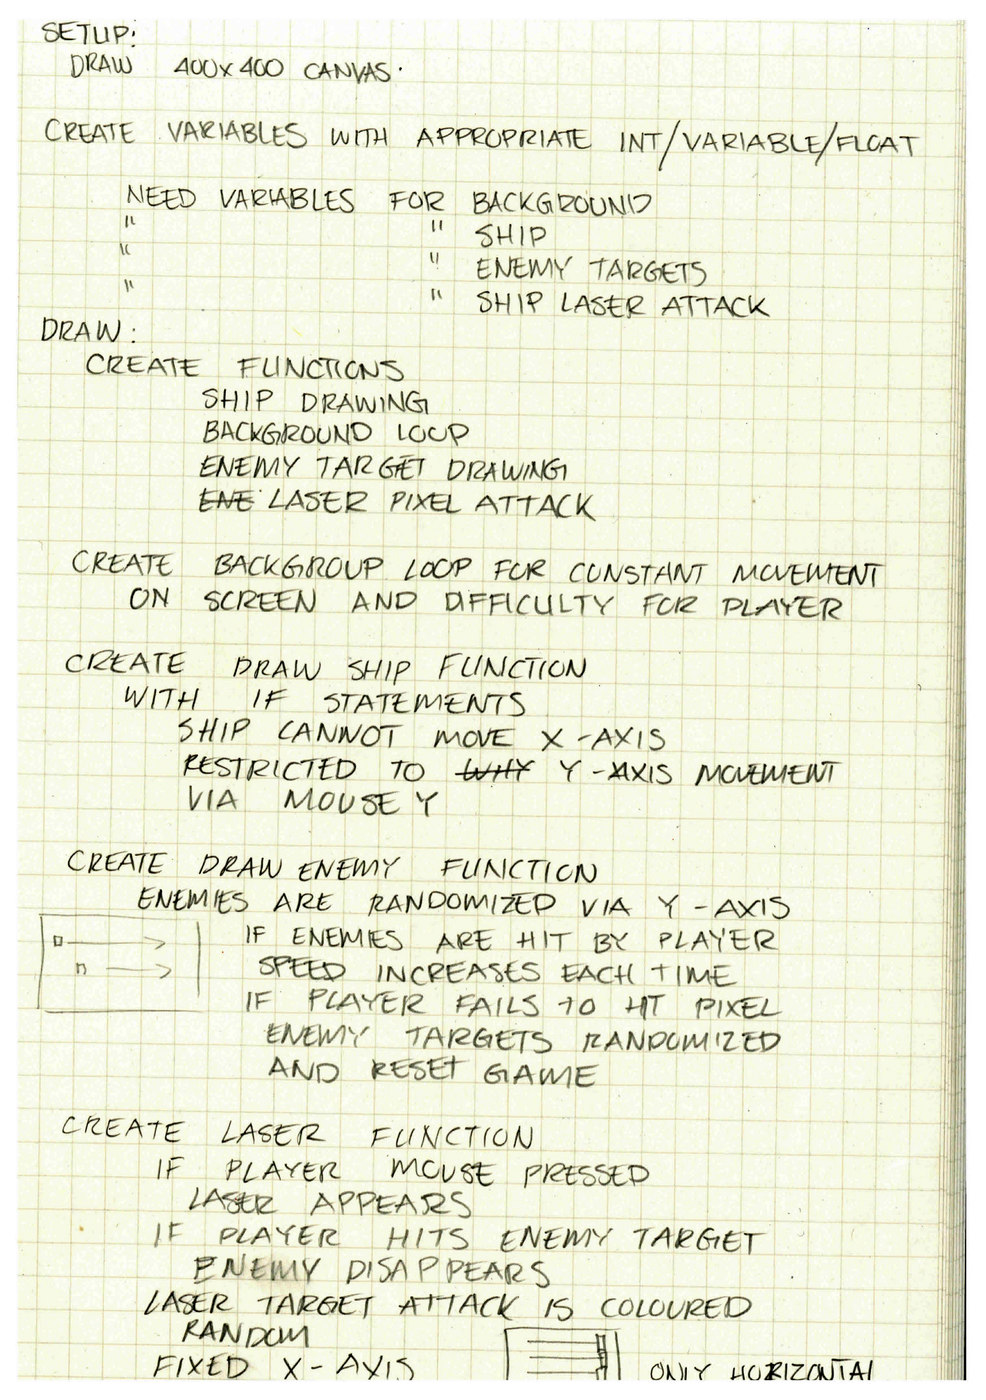 SETUP:
DRAW 400x400 CANVAS.
CREATE VARIABLES WITH APPROPRIATE INT/VARIABLE/FLOAT
NEED VARIABLES FOR BACKGROUND
" " SHIP
" " ENEMY TARGETS
" " SHIP LASER ATTACK
DRAW:
CREATE FUNCTIONS
SHIP DRAWING
BACKGROUND LOOP
ENEMY TARGET DRAWING
ENE LASER PIXEL ATTACK
CREATE BACKGROUP LOOP FOR CONSTANT MOVEMENT
ON SCREEN AND DIFFICULTY FOR PLAYER
CREATE DRAW SHIP FUNCTION
WITH IF STATEMENTS
SHIP CANNOT MOVE X-AXIS
RESTRICTED TO WHY Y-AXIS MOVEMENT
VIA MOUSE Y
CREATE DRAW ENEMY FUNCTION
ENEMIES ARE RANDOMIZED VIA Y-AXIS
IF ENEMIES ARE HIT BY PLAYER
SPEED INCREASES EACH TIME
IF PLAYER FAILS TO HIT PIXEL
ENEMY TARGETS RANDOMIZED
AND RESET GAME
CREATE LASER FUNCTION
IF PLAYER MOUSE PRESSED
LASER APPEARS
IF PLAYER HITS ENEMY TARGET
ENEMY DISAPPEARS
LASER TARGET ATTACK IS COLOURED
RANDOM
FIXED X-AXIS ONLY HORIZONTAL